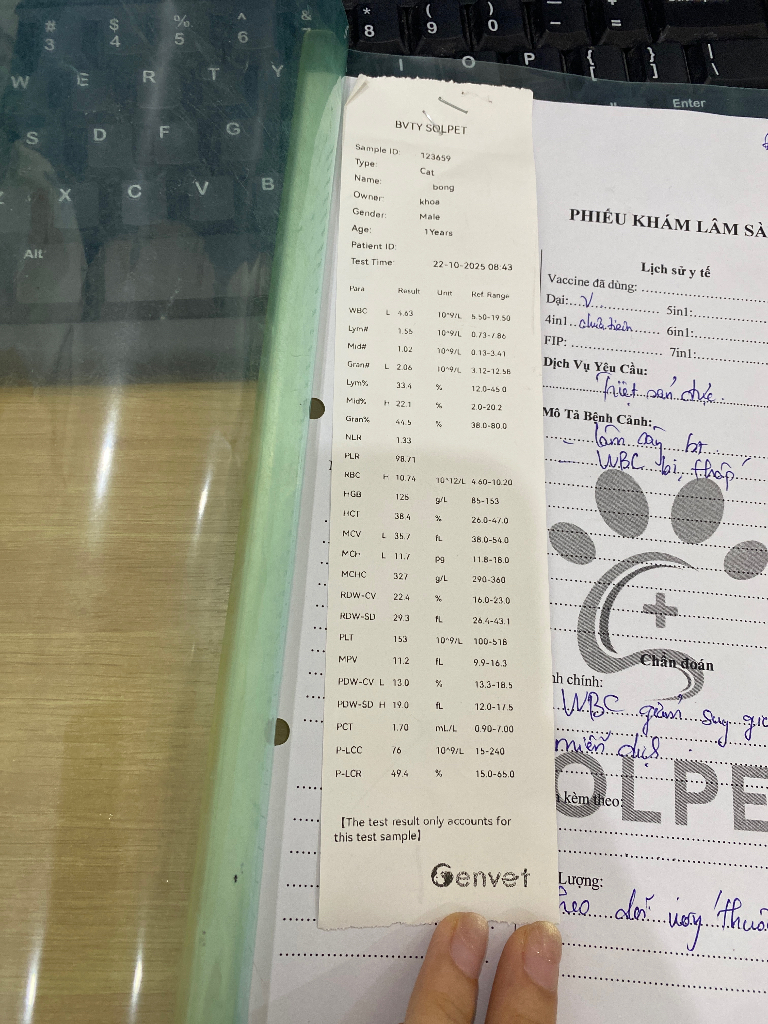 # 3
$ 4
% 5
^ 6
&
* 8
( 9
) 0
– −
+ =
W E R T Y I O P { [ } ] | \
Enter
S D F G
X C V B
Alt
BVTY SOLPET
Sample ID: 123659
Type: Cat
Name: bong
Owner: khoa
Gender: Male
Age: 1Years
Patient ID:
Test Time: 22-10-2025 08:43
Para Result Unit Ref. Range
WBC L 4.63 10^9/L 5.50-19.50
Lym# 1.55 10^9/L 0.73-7.86
Mid# 1.02 10^9/L 0.13-3.41
Gran# L 2.06 10^9/L 3.12-12.58
Lym% 33.4 % 12.0-45.0
Mid% H 22.1 % 2.0-20.2
Gran% 44.5 % 38.0-80.0
NLR 1.33
PLR 98.71
RBC H 10.74 10^12/L 4.60-10.20
HGB 126 g/L 85-153
HCT 38.4 % 26.0-47.0
MCV L 35.7 fL 38.0-54.0
MCH L 11.7 pg 11.8-18.0
MCHC 327 g/L 290-360
RDW-CV 22.4 % 16.0-23.0
RDW-SD 29.3 fL 26.4-43.1
PLT 153 10^9/L 100-518
MPV 11.2 fL 9.9-16.3
PDW-CV L 13.0 % 13.3-18.5
PDW-SD H 19.0 fL 12.0-17.5
PCT 1.70 mL/L 0.90-7.00
P-LCC 76 10^9/L 15-240
P-LCR 49.4 % 15.0-65.0
[The test result only accounts for
this test sample]
Genvet
PHIẾU KHÁM LÂM SÀ
Lịch sử y tế
Vaccine đã dùng:
Dại: V 5in1:
4in1 chưa tiêm 6in1:
FIP: 7in1:
Dịch Vụ Yêu Cầu:
Triệt sản đực
Mô Tả Bệnh Cảnh:
WBC bị thấp
Chẩn đoán
nh chính:
WBC giảm suy gi
miễn dịch
OLPE
kèm theo:
Lượng:
heo dõi uống thuố